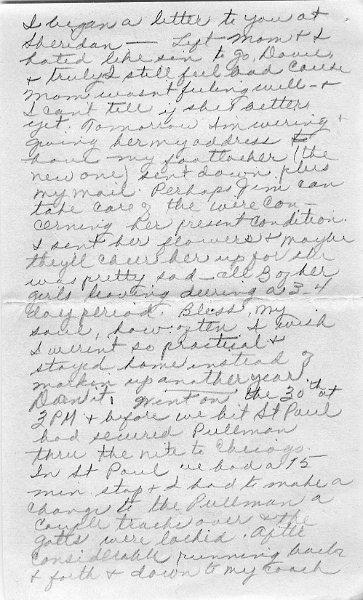 I began a letter to you at
Sheridan — Left Mom & I
hated like sin to go, Davie,
& truly I still feel bad cause
Mom wasn't feeling well - &
I can't tell if she's better
yet. Tomorrow I'm wiring &
giving her my address to
have my footlocker (the
new one) sent down plus
my mail. Perhaps Jim can
take care of the wire con-
cerning her present condition.
I sent her flowers & maybe
they'll cheer her up for she
was pretty sad - all 3 of her
girls leaving during a 3-4
day period. Bless my
soul, how often I wish
I weren't so practical &
stayed home instead of
makin up another year.
Darn it! Went on the 30th at
2PM & before we hit St Paul
had secured Pullman
thru the nite to Chicago.
In St Paul we had a 15-
min. stop & I had to make a
change to the Pullman a
couple tracks over & the
gates were locked. After
considerable running back
& forth & down to my coach